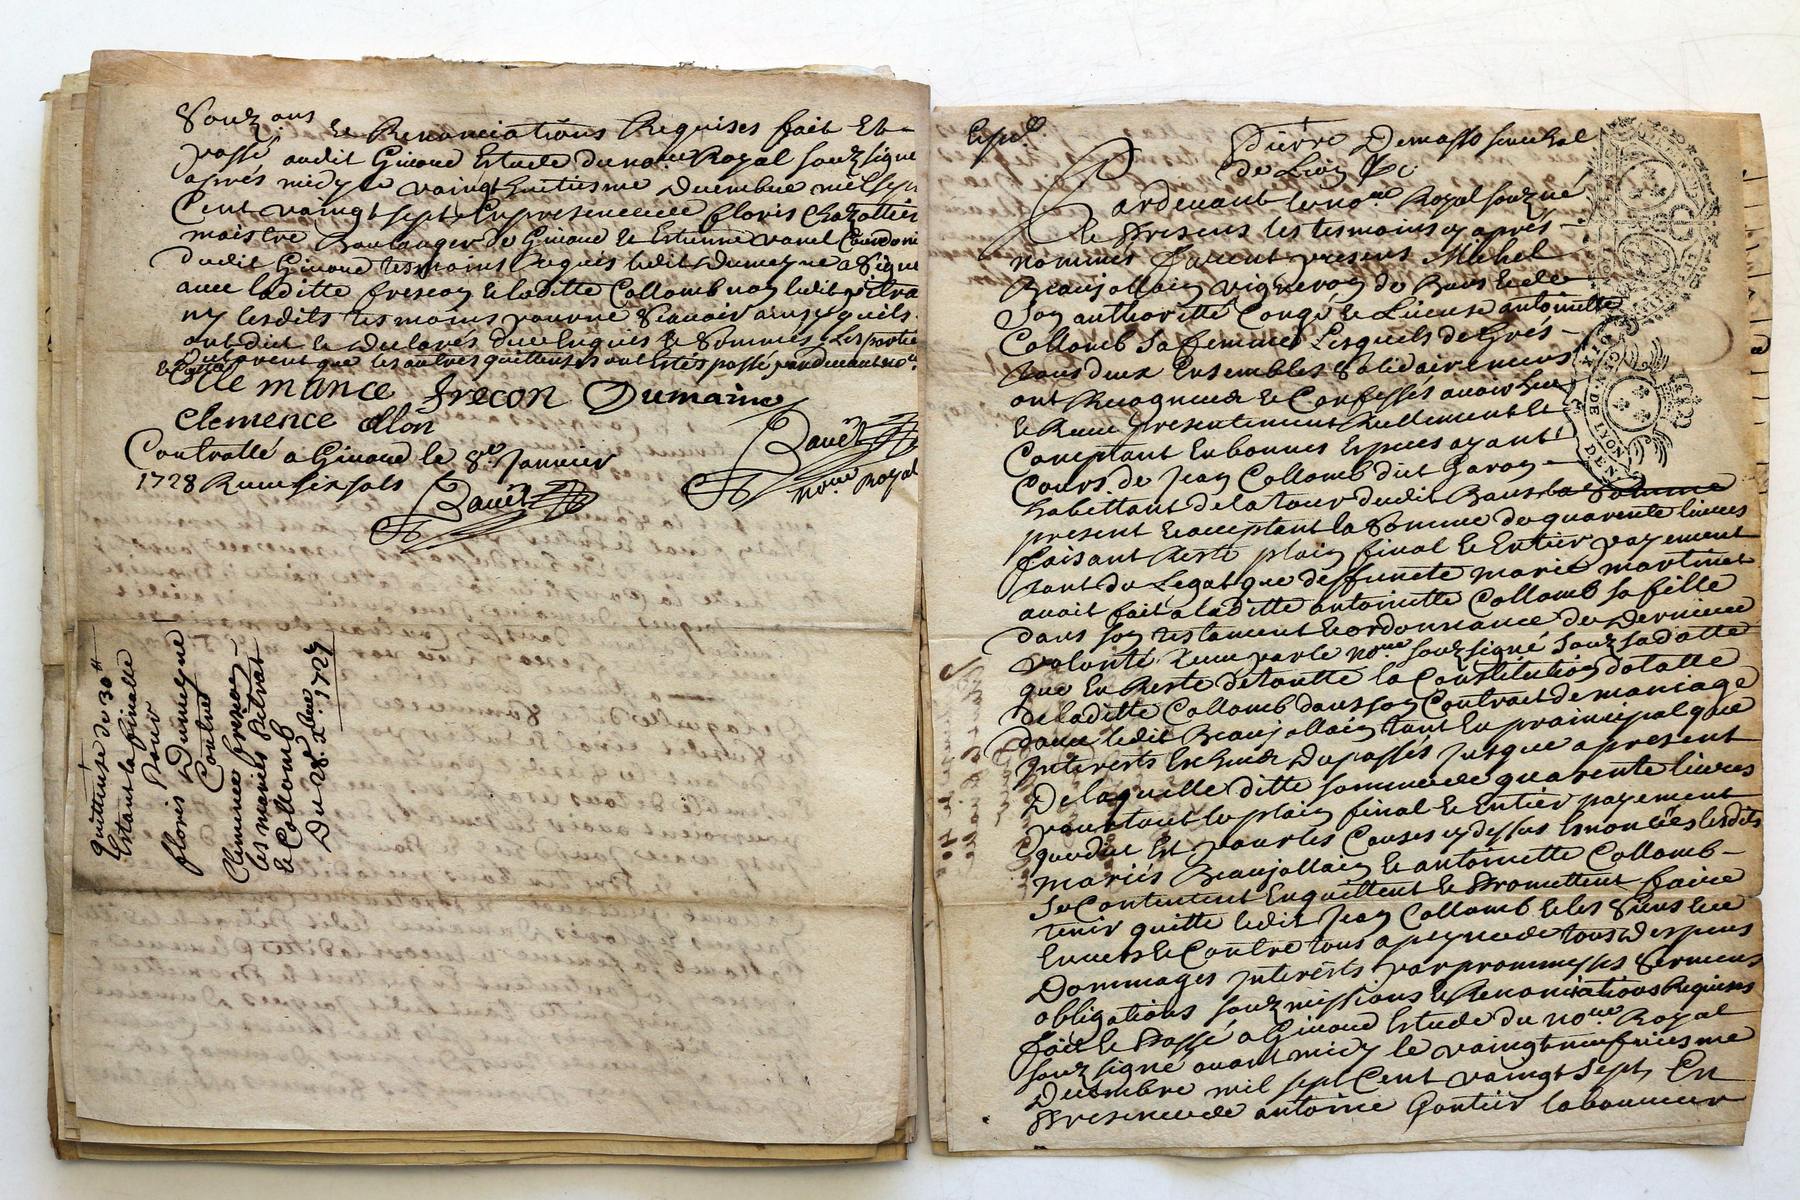 Souz ons
et Renonciations Requises fait Et-
passé audit Givord Estude du no.re Royal souzsigné
apres midy le vaingthuitiesme decembre mil sept
Cent vaingt sept En presence de floris Chazottier
maistre Boulanger de Givord et Estienne varel Courdoni
dudit Givord tesmoins Requis ledit dumeyne a signé
avec laditte frescon et laditte Collomb non ledit petitra
ny lesdits tesmoins pour ne scavoir ainsy quils
ont dit et declarés de ce Enquis et sommés Les parties
declarent que les autres quittenses ont Estés passé pardevant no.re
Cle mance frecon Dumaine
Clemence ollon
Bauet
no.re Royal
Contrallé a Givord le 8.e Janvier
1728 Receu six sols
Bauet
quittense de 30 ₶
Estant la finalle
Pour
floris Dumeyne
Contre
Clemence frescon
les mariés petitrat
et Collomb
Du 28. Xbre 1727
Expé.
Pierre Demasso senechal
de Lion &c
Pardevant le no.re Royal souz.né
Et Presens les tesmoins cy apres-
nommés furent presens Michel
Beaujollain vigneron de Bans et de
Son authoritte Congé et License antoinette
Collomb sa femme Lesquels de Gres-
tous deux Ensembles solidairement
ont Recogneu et Confessés avoir heu
et Receu presentement Reellement et
Comptant En bonnes Espeses ayant
Cours de Jean Collomb dit Garon-
habittant de la tour dudit Bans la somme
present et acceptant la somme de quarente livres
faisant Reste plain final et Entier payement
tant du Legat que deffuncte marie martinet
avoit fait a laditte antoinette Collomb sa fille
dans son testament et ordonnance de derniere
volonté Receu par le no.re souzsigné souz sa datte
que En Reste de toutte la Constitution dotalle
de laditte Collomb dans son Contrat de mariage
avec ledit Beaujollain tant En prainsipal que
Interests En heus du passés jusque a present
De laquelle ditte somme de quarente livres
pour tout le plain final et Entier payement
que dit Est pour les Causes cy dessus Enoncées lesdits
mariés Beaujollain et antoinette Collomb-
se Contentent En quittent et Promettent faire
tenir quitte ledit Jean Collomb et les siens En
Envers et Contre tous a peyne de tous despens
Dommages Interests par prommesses sermens
obligations souzmissions et Renonciations Requises
fait et Passé a Givord Estude du no.re Royal
souz signé avant midy le vaingtneufviesme
Decembre mil sept Cent vaingt sept, En
Presence de antoine Gontier laboureur
DE LYON
GEN.